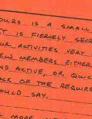 OURS IS A SMALL
TY IS FIERCELY SECR
UR ACTIVITIES VERY
MEMBERS EITHER
ND ACTIVE, OR, QUIC
CK OF THE REQUIRE
OULD SAY.
MORE